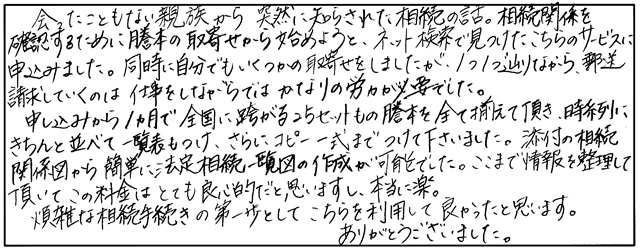 会ったこともない親族から突然に知らされた相続の話。相続関係を
確認するために謄本の取寄せから始めようと、ネット検索で見つけたこちらのサービスに
申込みました。同時に自分でもいくつかの取寄せをしましたが、1つ1つ辿りながら、郵送
請求していくのは仕事をしながらではかなりの労力が必要でした。
申し込みから1カ月で全国に跨がる25セットもの謄本を全て揃えて頂き、時系列に
きちんと並べて一覧表もつけ、さらにコピー一式までつけて下さいました。添付の相続
関係図から簡単に法定相続一覧図の作成が可能でした。ここまで情報を整理して
頂いてこの料金はとても良心的だと思いますし、本当に楽。
煩雑な相続手続きの第一歩としてこちらを利用して良かったと思います。
ありがとうございました。